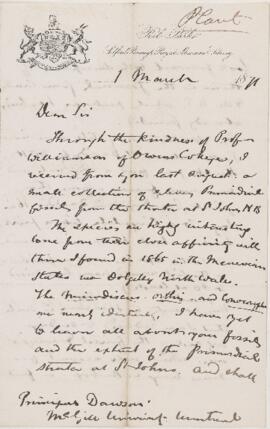 Plant
Peel Park
Salford Borough Royal Museum & Library
1 March 1871
Dear Sir
Through the kindness of Prof
Williamson of Owens College, I
received from you last August a
small collection of slaty Primordial
fossils from the strata at St Johns, N.B
The species are highly interesting
some from their close affinity with
those I found in 1865 in the Menevian
Strata near Dolgelly North Wales.
The Microdiscus, Orthis, and Conocoryphe
are nearly identical, I have yet
to learn all about your fossils
and the extent of the Primordial
strata at St Johns, and shall
Principal Dawson
McGill University Montreal